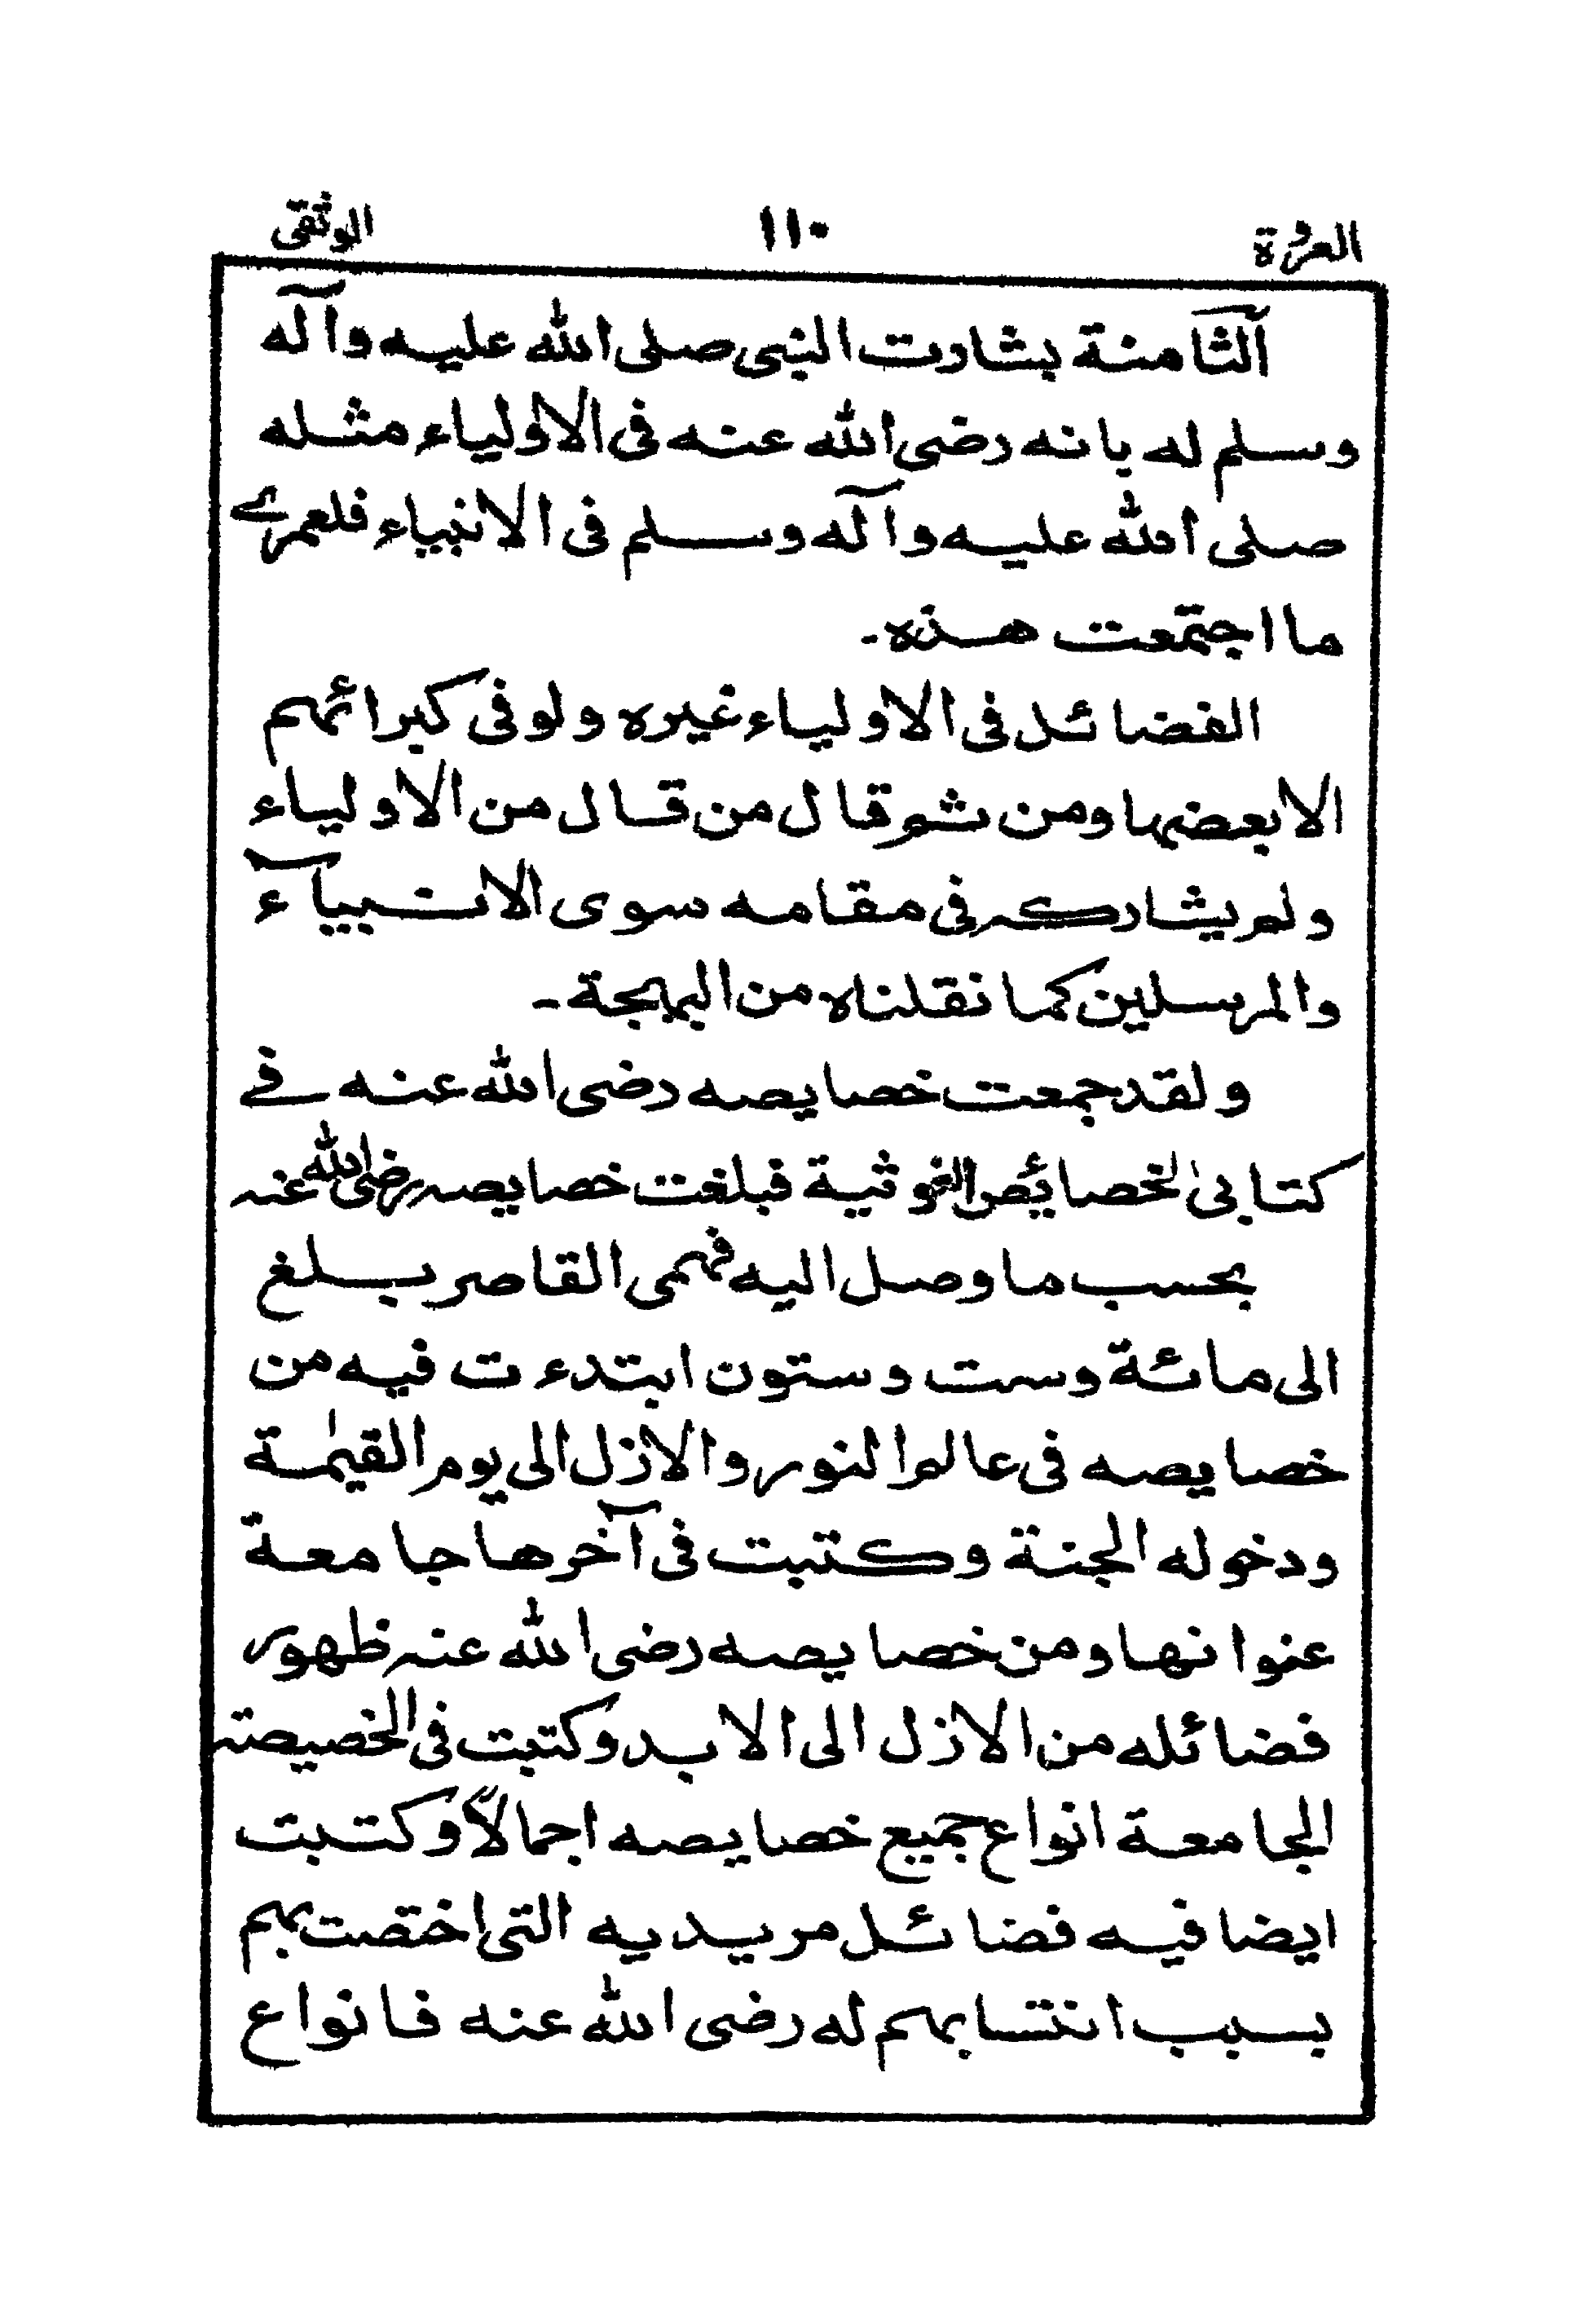 العروة ١١٠ الوثقى
الثامنة بشارت النبی صلی الله علیه وآله
وسلم له بانه رضی الله عنه فی الاولیاء مثله
صلی الله علیه وآله وسلم فی الانبیاء فلعمرے
ما اجتمعت هذه۔
الفضائل فی الاولیاء غیره ولو فی کبرائهم
الا بعضها ومن ثم قال من قال من الاولیاء
ولم یشارکه فی مقامه سوی الانبیآء
والمرسلین کما نقلناه من البهجة۔
ولقد جمعت خصایصه رضی الله عنه فے
کتابی الخصائص الغوثیة فبلغت خصایصه رضی الله عنه
بحسب ما وصل الیه فهمی القاصر بلغ
الی مائة وست وستون ابتدءت فیه من
خصایصه فی عالم النور والازل الی یوم القیٰمة
ودخوله الجنة وکتبت فی آخرها جامعة
عنوانها ومن خصایصه رضی الله عنه ظهور
فضائله من الازل الی الابد وکتبت فی الخصیصته
الجامعة انواع جمیع خصایصه اجمالاً وکتبت
ایضا فیه فضائل مریدیه التی اختصت بهم
بسبب انتسابهم له رضی الله عنه فانواع